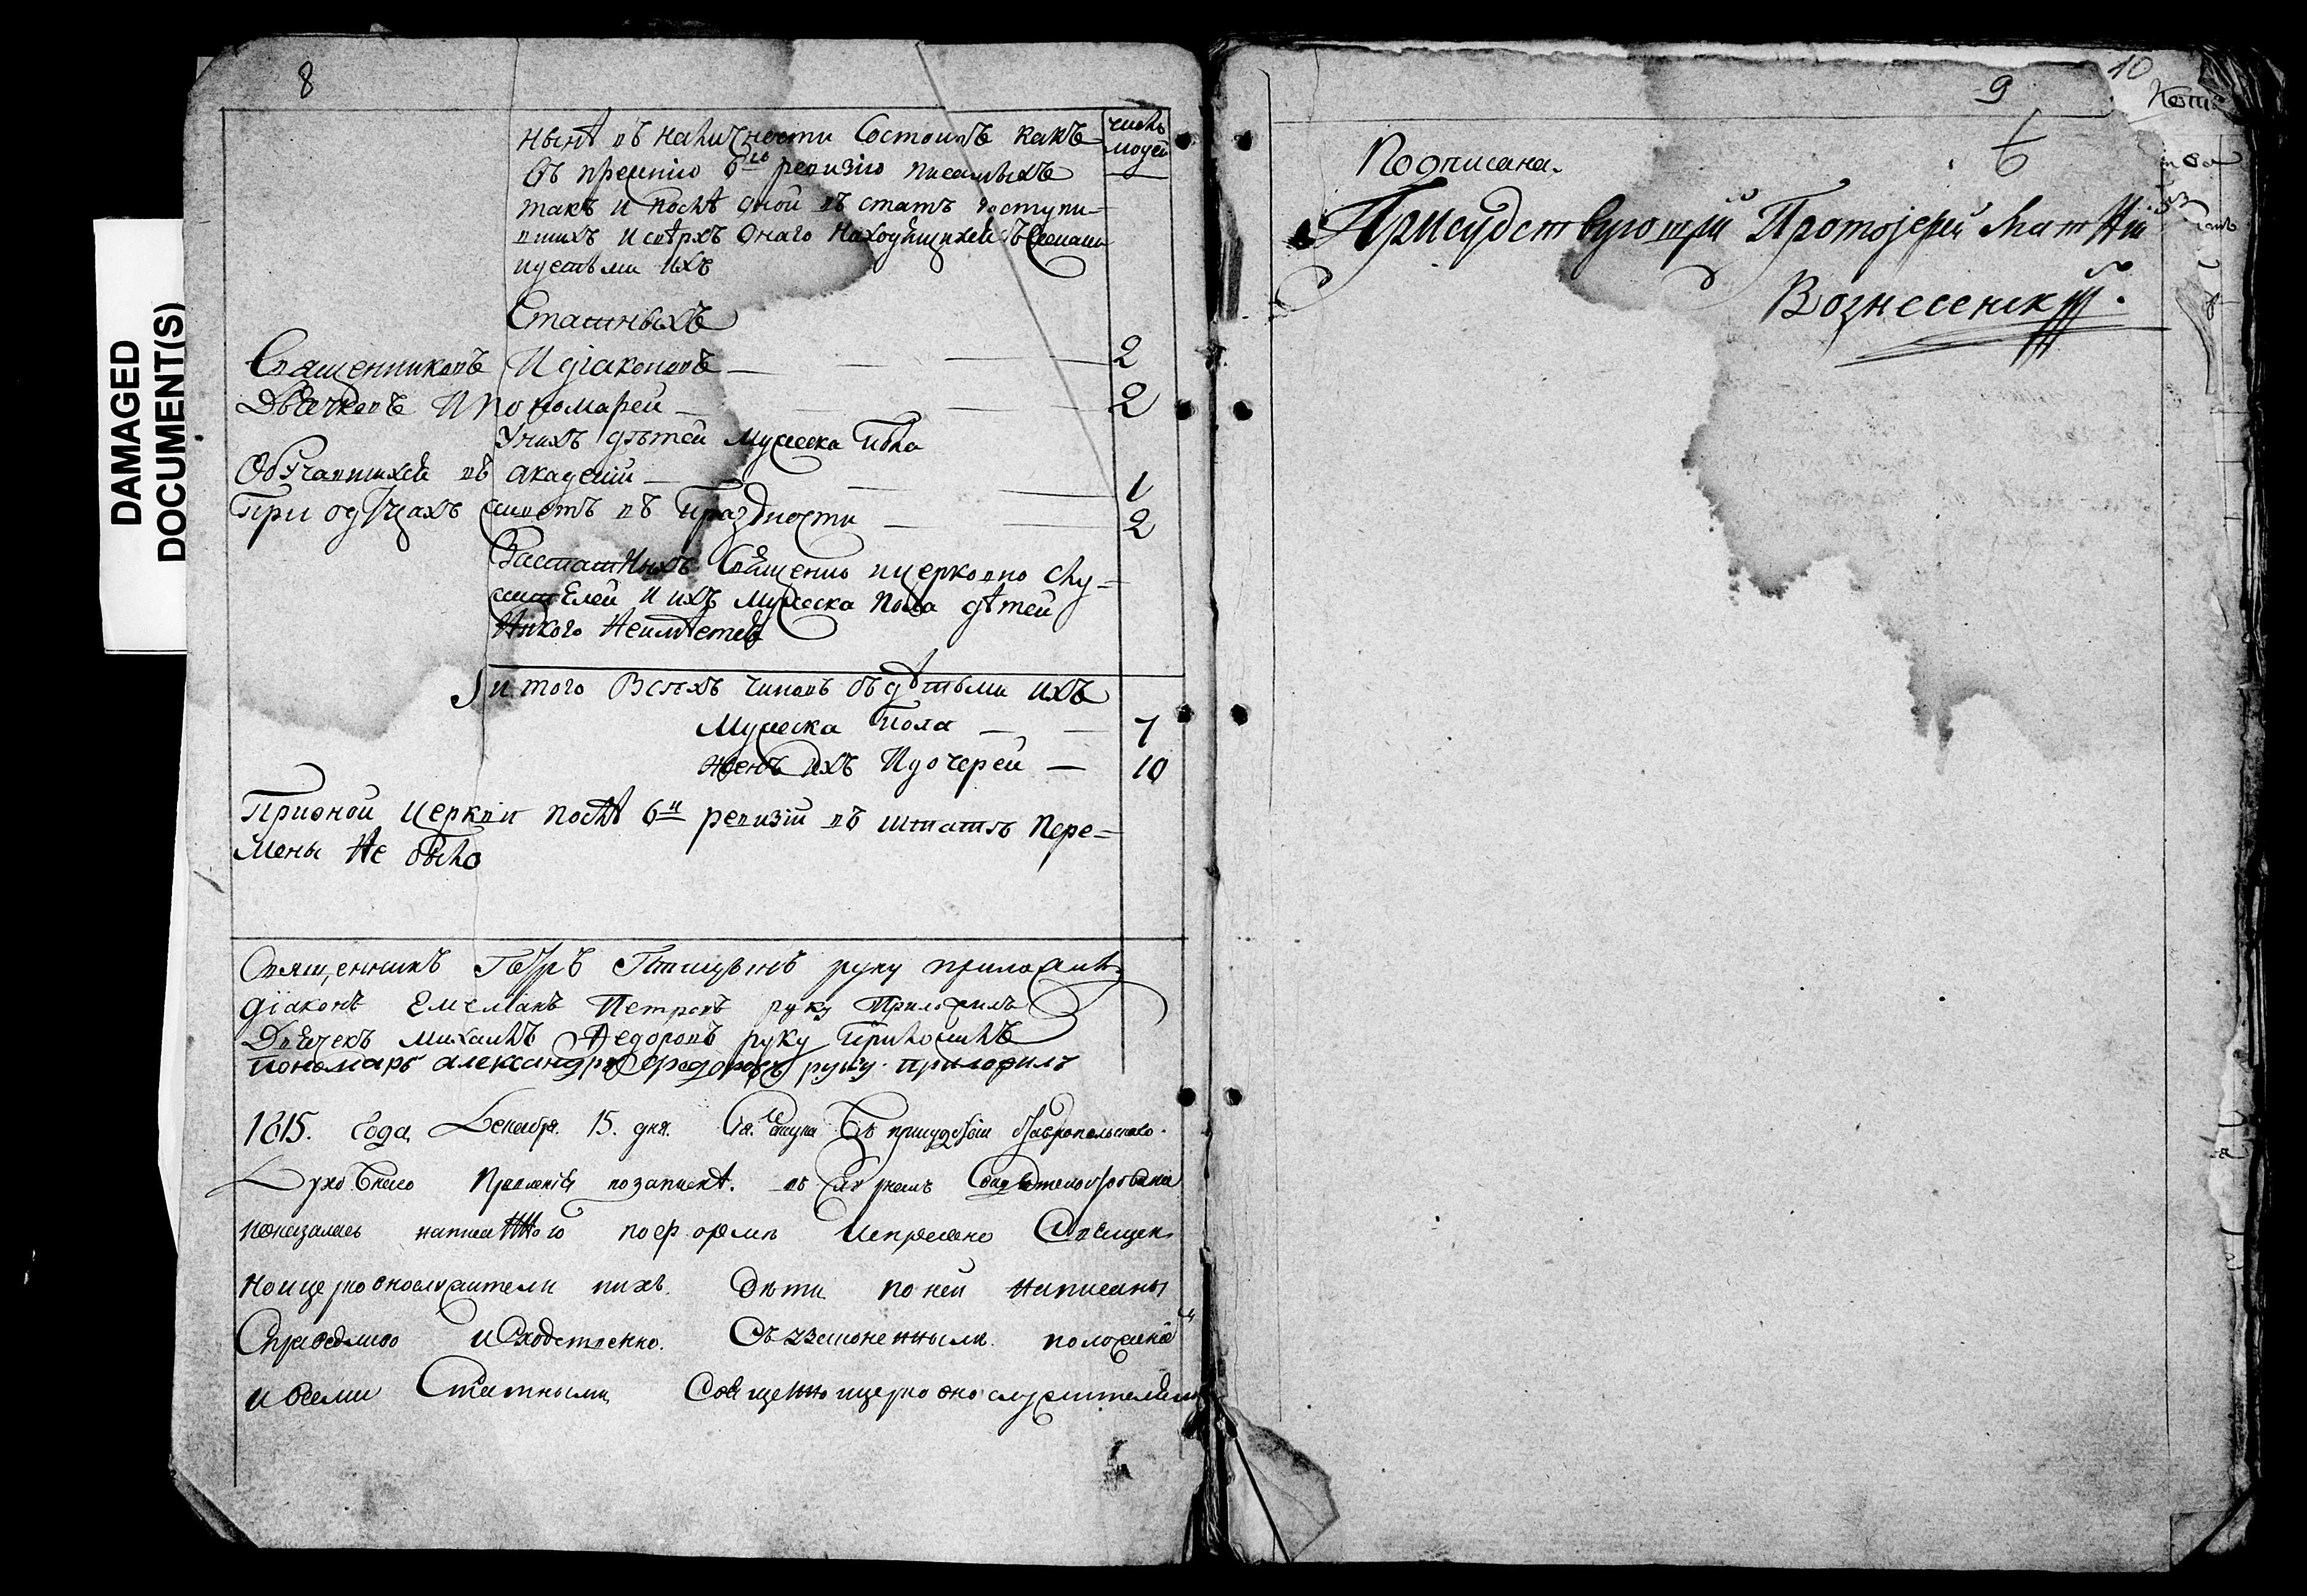 DAMAGED
DOCUMENT(S)
8
число
людей
нынѣ въ наличности Состоитъ какъ
въ прешлую 6ю ревизию писанныхъ
такъ и послѣ оной въ статъ поступи-
вшихъ и свѣрхъ онаго находящихся съ женами
идетьми ихъ
Статныхъ
Священниковъ И діаконовъ — 2
Дьячковъ И пономарей — 2
У нихъ дѣтей мужеска пола
Обучавшихся въ академіи — 1
При отцахъ живетъ въ праздности — 2
Застатныхъ Священно ицерковно слу-
жителей и ихъ мужеска пола дѣтей
Никого Неимѣется
и того Всѣхъ чиновъ съ дѣтьми ихъ
Мужеска Пола — 7
женъ ихъ Идочерей — 10
Прионой церкви послѣ 6й ревизіи въ штатѣ пере-
мены Не было
Священникъ Петръ руку приложилъ
діаконъ Емеліанъ Петровъ руку Приложилъ
Дьячекъ михаилъ Федоровъ руку Приложилъ
пономарь александръ Федоровъ руку приложилъ
1815. Года Декабря. 15. дня. Сія Скаска Въ присудствіи Ставропольскаго
Духовнаго Правленія позаписке. въ свидетельствована
показалась написанною поформѣ Священ-
ноицерковнослужители ихъ дѣти по ней написаны
Справедливо и Сходственно. Съ положеніемъ
и всеми Статными Священно ицерковнослужителями
9
10
Подписана.
Присудствующій Протоіерей Матѳій
Вознесенскій.